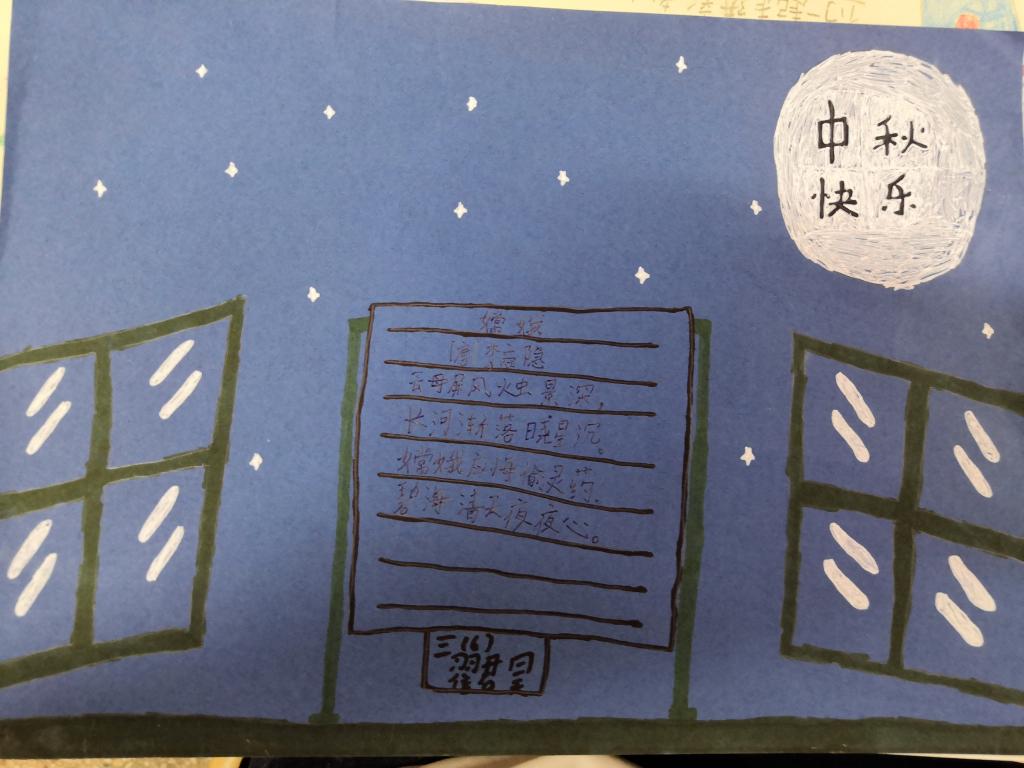 中秋
快乐
嫦娥
[唐]李商隐
云母屏风烛景深,
长河渐落晓星沉。
嫦娥应悔偷灵药,
碧海清天夜夜心。
三(6)